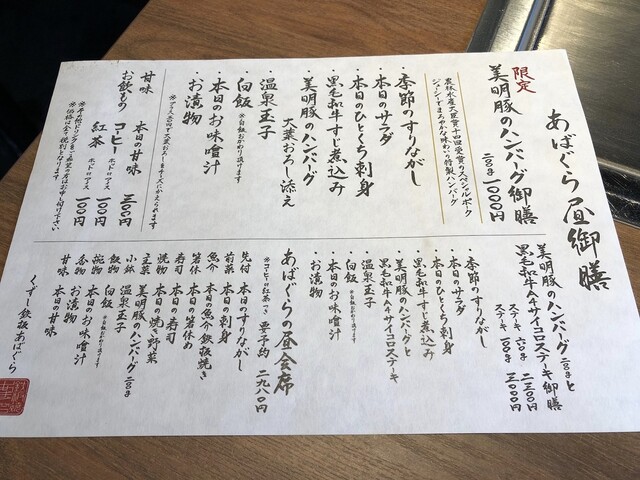 あばぐら昼御膳
限定
美明豚のハンバーグ御膳
200g 一〇〇〇円
農林水産大臣賞十四回受賞のスペシャルポーク
ジューシーでまろやかな味わいの特製ハンバーグ
・季節のすりながし
・本日のサラダ
・本日のひとくち刺身
・黒毛和牛すじ煮込み
・美明豚のハンバーグ
大葉おろし添え
・温泉玉子
・白飯
※白飯おかわり頂けます
・本日のお味噌汁
・お漬物
甘味 本日の甘味 三〇〇円
お飲もの コーヒー ホット・アイス 一〇〇円
紅茶 ホット・アイス 一〇〇円
※価格は全て税別となります
美明豚のハンバーグ200gと
黒毛和牛A4サイコロステーキ御膳
ステーキ 60g 二三〇〇円
ステーキ 100g 三〇〇〇円
・季節のすりながし
・本日のサラダ
・本日のひとくち刺身
・黒毛和牛すじ煮込み
・美明豚のハンバーグと
黒毛和牛A4サイコロステーキ
・温泉玉子
・白飯
※白飯おかわり頂けます
・本日のお味噌汁
・お漬物
あばぐらの昼会席
※コーヒー・紅茶つき 要予約 二九八〇円
先付 本日のすりながし
前菜 本日の刺身
魚介 本日の魚介鉄板焼き
箸休 本日の箸休め
寿司 本日の寿司
焼物 本日の焼き野菜
主菜 美明豚のハンバーグ200g
小鉢 温泉玉子
飯物 白飯
※白飯おかわり頂けます
椀物 本日のお味噌汁
香物 お漬物
甘味 本日の甘味
くずし鉄板あばぐら